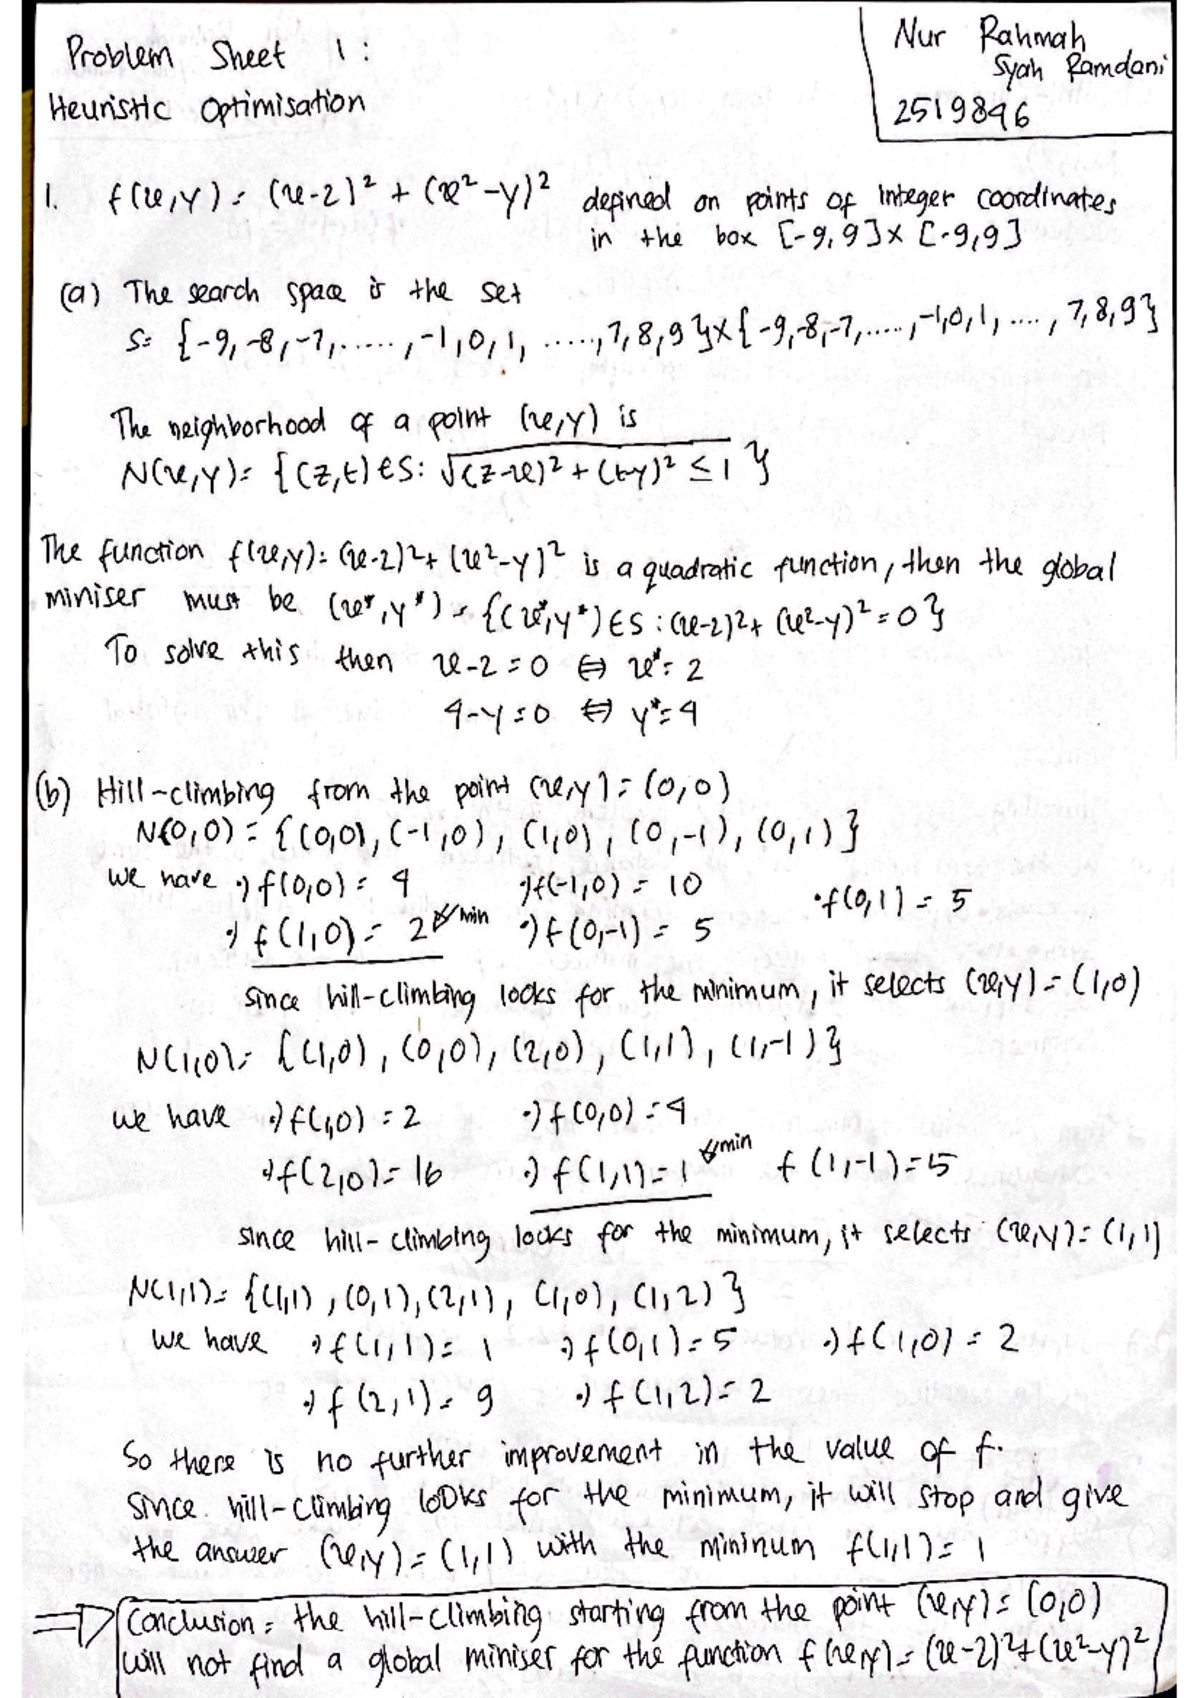 Problem Sheet 1 :
Heuristic Optimisation
Nur Rahmah
Syah Ramdani
2519846
1. f(x,y) = (x-2)² + (x²-y)² defined on points of integer coordinates
in the box [-9,9]x [-9,9]
(a) The search space is the set
S= {-9,-8,-7,......,-1,0,1, .....,7,8,9}x{-9,-8,-7,.....,-1,0,1, ....,7,8,9}
The neighborhood of a point (x,y) is
N(x,y)= {(z,t)∈S: √(z-x)² + (t-y)² ≤ 1 }
The function f(x,y)= (x-2)²+ (x²-y)² is a quadratic function, then the global
miniser must be (x*,y*) = {(x*,y*)∈S : (x-2)²+ (x²-y)² = 0}
To solve this then x-2=0 ⇔ x*= 2
4-y=0 ⇔ y*=4
(b) Hill-climbing from the point (x,y) = (0,0)
N(0,0) = {(0,0), (-1,0), (1,0), (0,-1), (0,1)}
we have •) f(0,0) = 4 •) f(-1,0) = 10 • f(0,1) = 5
•) f(1,0) = 2 ← min •) f(0,-1) = 5
Since hill-climbing looks for the minimum, it selects (x,y) = (1,0)
N(1,0)= {(1,0), (0,0), (2,0), (1,1), (1,-1)}
we have •) f(1,0) = 2 •) f(0,0) = 4
•) f(2,0) = 16 •) f(1,1) = 1 ← min f (1,-1) = 5
since hill-climbing looks for the minimum, it selects (x,y) = (1,1)
N(1,1)= {(1,1), (0,1), (2,1), (1,0), (1,2)}
we have •) f(1,1) = 1 •) f(0,1) = 5 •) f(1,0) = 2
•) f(2,1) = 9 •) f(1,2) = 2
So there is no further improvement in the value of f.
Since hill-climbing looks for the minimum, it will stop and give
the answer (x,y) = (1,1) with the mininum f(1,1) = 1
⇒ Conclusion = the hill-climbing starting from the point (x,y) = (0,0)
will not find a global miniser for the function f(x,y) = (x-2)²+(x²-y)²